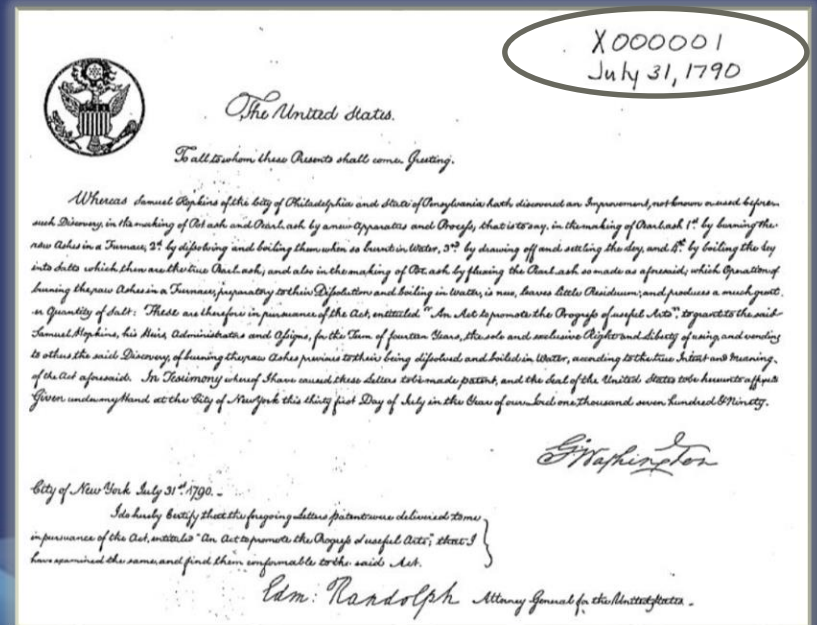 X000001
July 31, 1790
The United States.
To all to whom these Presents shall come, Greeting.
Whereas Samuel Hopkins of the City of Philadelphia and State of Pensylvania hath discovered an Improvement, not known or used before
such Discovery, in the making of Pot ash and Pearl ash by a new Apparatus and Process, that is to say, in the making of Pearl ash 1st by burning the
raw Ashes in a Furnace, 2d by dissolving and boiling them when so burnt in Water, 3rd by drawing off and settling the Ley, and 4th by boiling the Ley
into Salts which then are the true Pearl ash; and also in the making of Pot ash by fluxing the Pearl ash so made as aforesaid; which Operation of
burning the raw Ashes in a Furnace, preparatory to their Dissolution and boiling in Water, is new, leaves little Residuum; and produces a much great-
er Quantity of Salt: These are therefore in pursuance of the Act, entituled "An Act to promote the Progress of useful Arts", to grant to the said
Samuel Hopkins, his Heirs, Administrators and Assigns, for the Term of fourteen Years, the sole and exclusive Right and Liberty of using, and vending
to others the said Discovery, of burning the raw Ashes previous to their being dissolved and boiled in Water, according to the true Intent and Meaning
of the Act aforesaid. In Testimony whereof I have caused these Letters to be made patent, and the Seal of the United States to be hereunto affixed
Given under my Hand at the City of New York this thirty first Day of July in the Year of our Lord one thousand seven hundred & Ninety.
G. Washington
City of New York July 31st 1790. -
I do hereby Certify that the foregoing Letters patent were delivered to me
in pursuance of the Act, entituled "An Act to promote the Progress of useful Arts"; that I
have examined the same, and find them conformable to the said Act.
Edm: Randolph Attorney General for the United States.